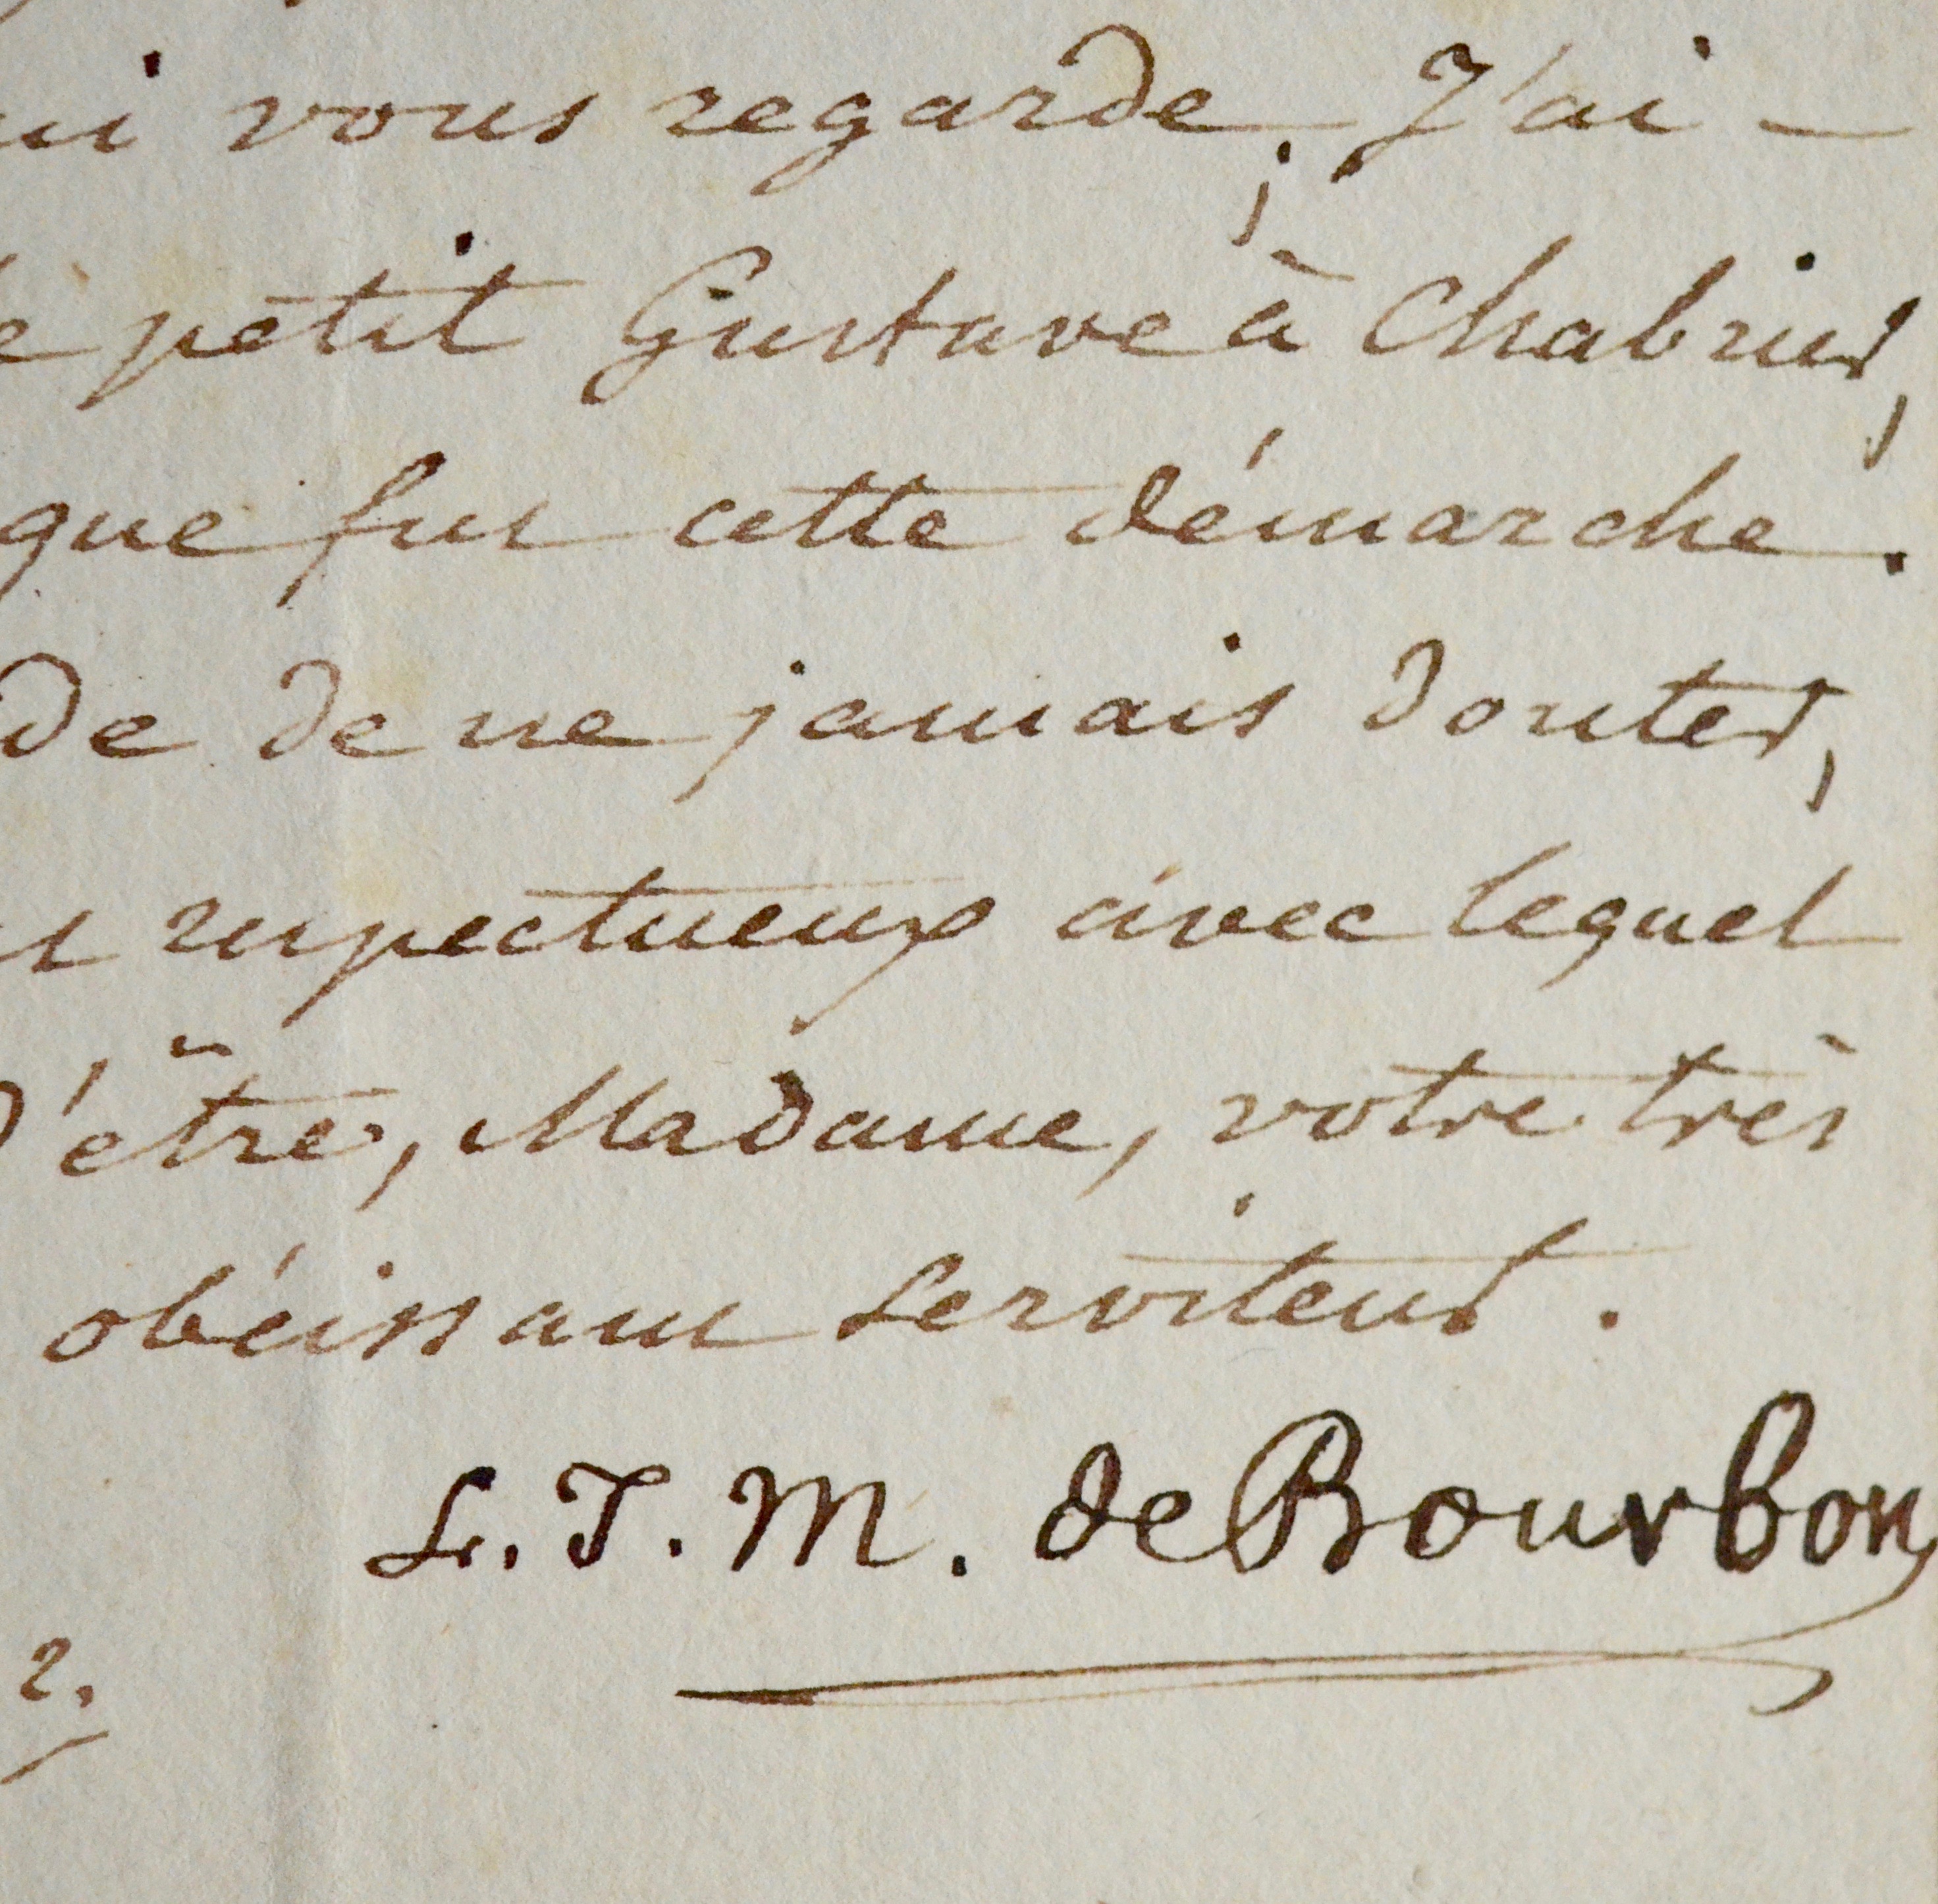 ui vous regarde; J'ai –
e petit Gustave à Chabrier,
que fut cette démarche.
de de ne jamais douter,
et respectueux avec lequel
d'être, Madame, votre très
obéissant serviteur.
L. J. M. de Bourbon
2.